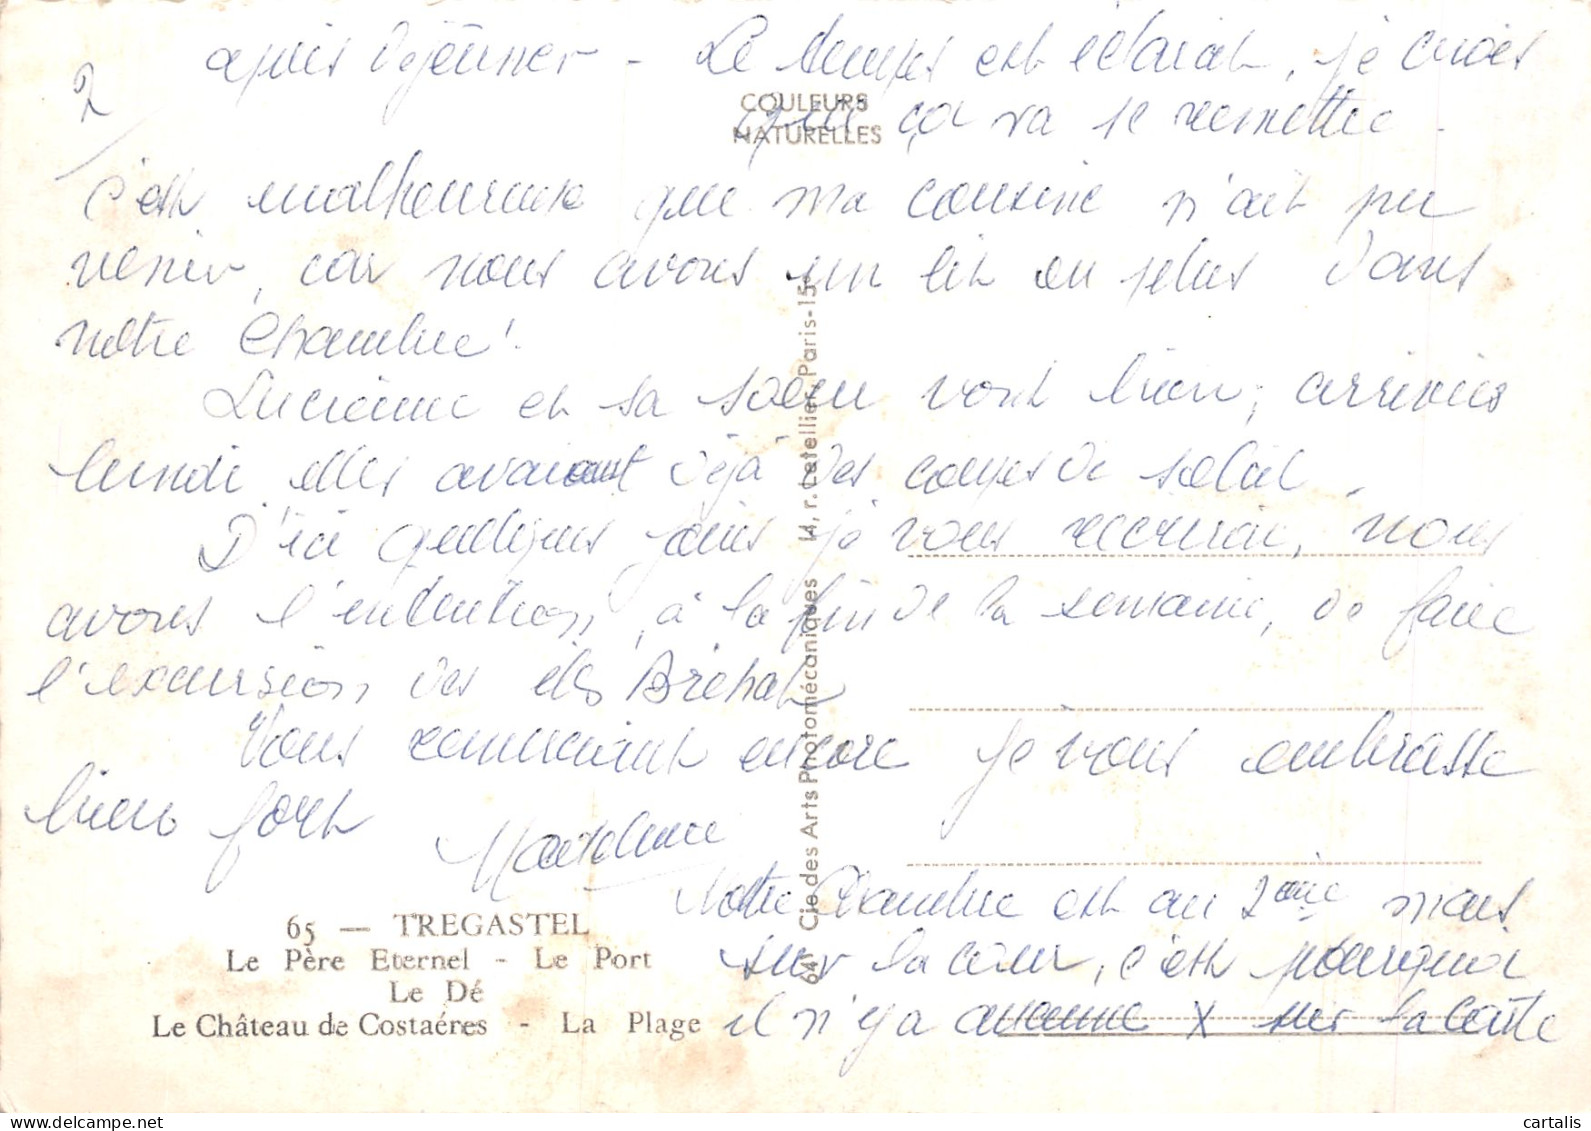 2
après déjeuner - Le temps est éclairci, je crois
que ça va se remettre.
COULEURS
NATURELLES
C'est malheureux que ma cousine n'ait pu
venir, car nous avons un lit en plus dans
notre chambre !
Lucienne et sa soeur vont bien, arrivées
lundi elles avaient déjà des coups de soleil.
D'ici quelques jours je vous récrirai, nous
avons l'intention, à la fin de la semaine, de faire
l'excursion des îles Bréhat
Vous remerciant encore je vous embrasse
bien fort
Madeleine
Notre chambre est au 2ème mais
sur la cour, c'est pourquoi
il n'y a aucune X sur la carte
65 — TREGASTEL
Le Père Eternel - Le Port
Le Dé
Le Château de Costaéres - La Plage
641 Cie des Arts Photomécaniques 44, r. Letellier, Paris-15e
cartalis